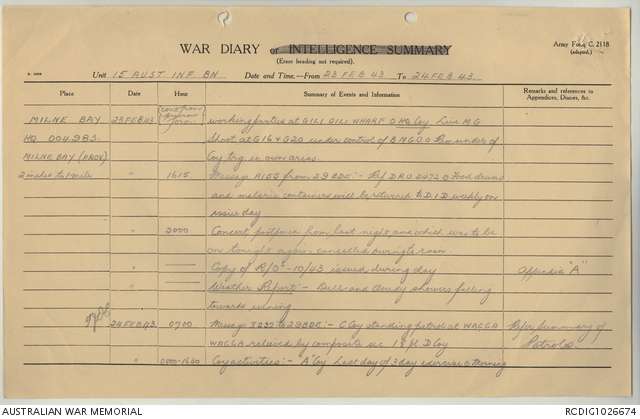 WAR DIARY or INTELLIGENCE SUMMARY
(Erase heading not required).
Army Form C. 2118
(adapted.)
Unit 15 AUST INF BN Date and Time.—From 23 FEB 43 To 24 FEB 43
Place Date Hour Summary of Events and Information Remarks and references to Appendices, Diaries, &c.
MILNE BAY 23 FEB 43 working parties at GILI GILI WHARF HQ Coy Live MG
HQ 004983 Shoot at G16 & G20 under control of Remainder of
MILNE BAY (PROV) Coy trg. in own areas.
2 miles to 1 mile " 1615 Message A155 from 29 BDE:- Food drums
and malaria containers will be returned to D.I.D weekly on
issue day
" 2000 Concert postponed from last night and which was to be
on tonight again cancelled owing to rain
" Copy of R/O - 10/43 issued during day Appendix "A"
" Weather Report:- Dull and cloudy showers falling
towards evening
24 FEB 43 0700 Message to 29 BDE:- C Coy standing patrol at WAGGA Refer Summary of
WAGGA relieved by composite sec 18 Pl D Coy Patrols.
" 0000-1600 Coy activities:- "A" Coy Last day of 3 day exercise
AUSTRALIAN WAR MEMORIAL RCDIG1026674